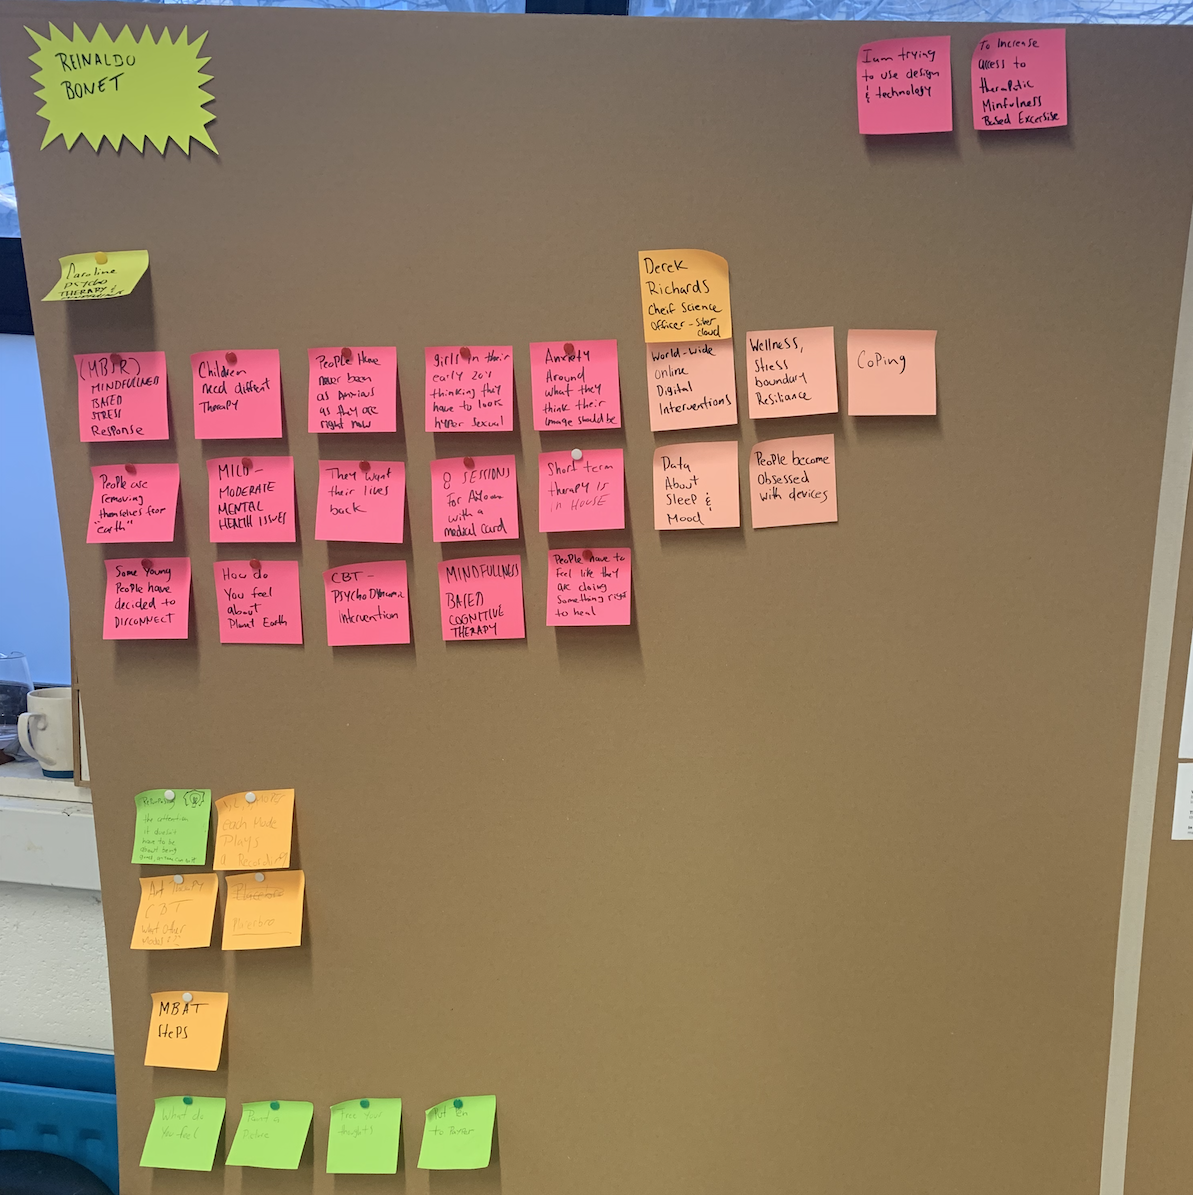 REINALDO
BONET
I am trying
to use design
& technology
To Increase
access to
theraPutic
Minfulness
Based Excersise
PSYCHO
THERAPY &
Derek
Richards
Cheif Science
Officer - Silver
cloud
(MBSR)
MINDFULLNESS
BASED
STRESS
Response
Children
need different
Therapy
People Have
never been
as Anxious
as they are
right now
girls in their
early 20's
thinking they
have to look
hyper sexual
Anxiety
Around
what they
think their
image should be
World-wide
Online
Digital
Interventions
Wellness,
Stress
boundary
Resiliance
CoPing
People are
removing
themselves from
"earth"
MILD -
MODERATE
MENTAL
HEALTH ISSUES
They want
their lives
back
8 SESSIONS
For
with a
medical card
Short term
therapy is
in HOUSE
Data
About
Sleep &
Mood
People become
Obsessed
with devices
Some Young
People have
decided to
DISCONNECT
How do
You feel
about
Planet Earth
CBT -
PSYchoDYnamic
intervention
MINDFULLNESS
BASED
COGNITIVE
THERAPY
People have to
Feel like they
are doing
Something right
to heal
the
it doesn't
have to be
about being
Each Mode
Plays
a Recording
Art Therapy
CBT
What Other
Models?
MBAT
StePs
What do
You feel
Paint a
Picture
Free Your
thoughts
Put Pen
to Paper